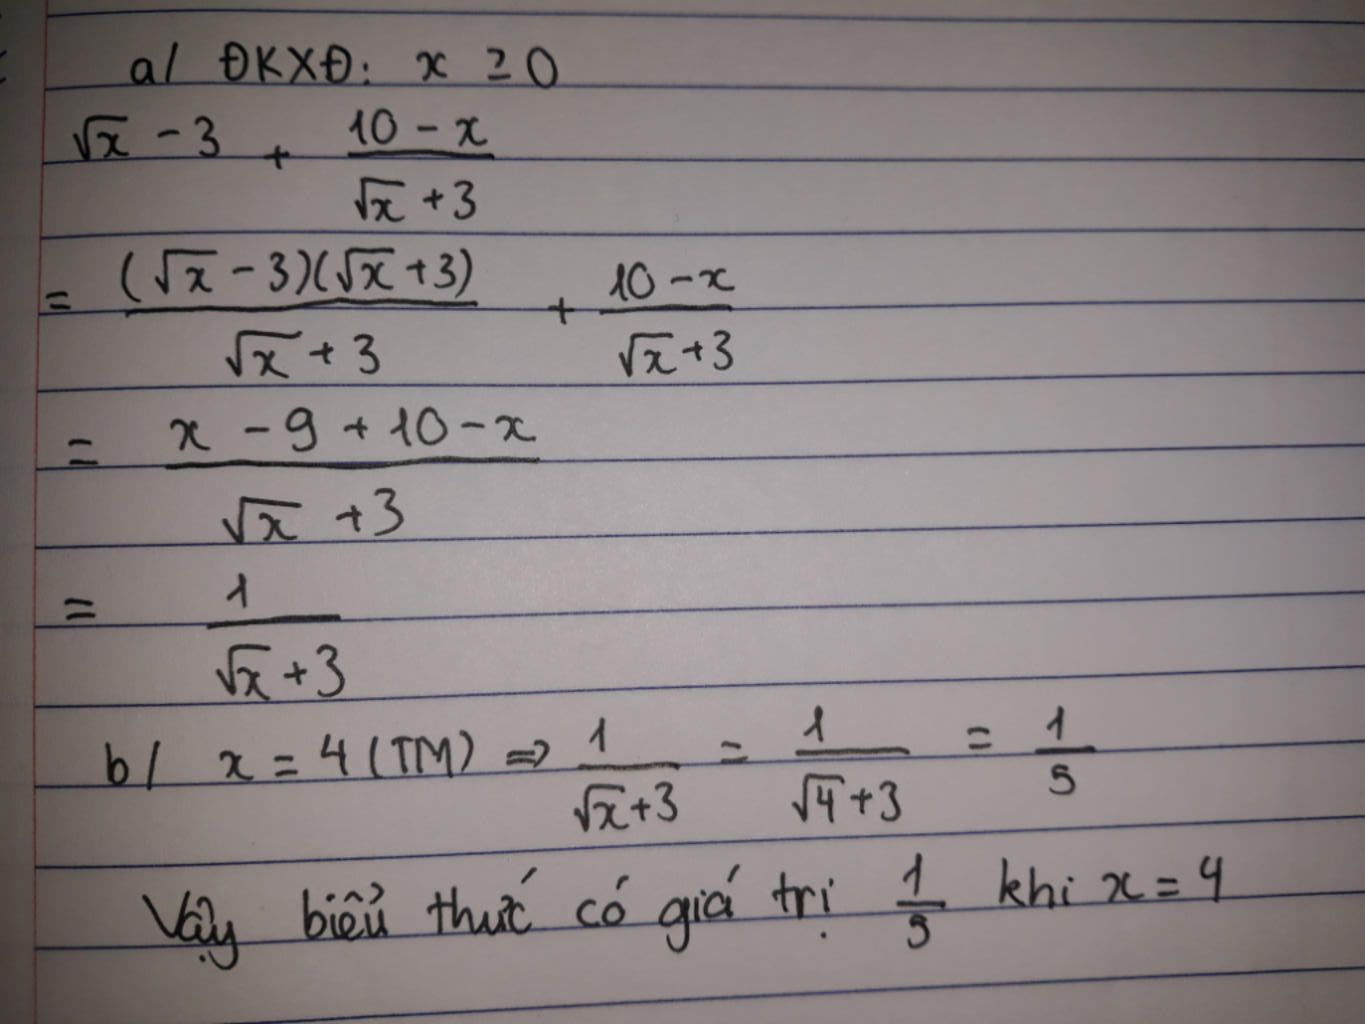 a/ ĐKXĐ: x ≥ 0
√x - 3 + (10 - x)/(√x + 3)
= ((√x - 3)(√x + 3))/(√x + 3) + (10 - x)/(√x + 3)
= (x - 9 + 10 - x)/(√x + 3)
= 1/(√x + 3)
b/ x = 4 (TM) => 1/(√x + 3) = 1/(√4 + 3) = 1/5
Vậy biểu thức có giá trị 1/5 khi x = 4